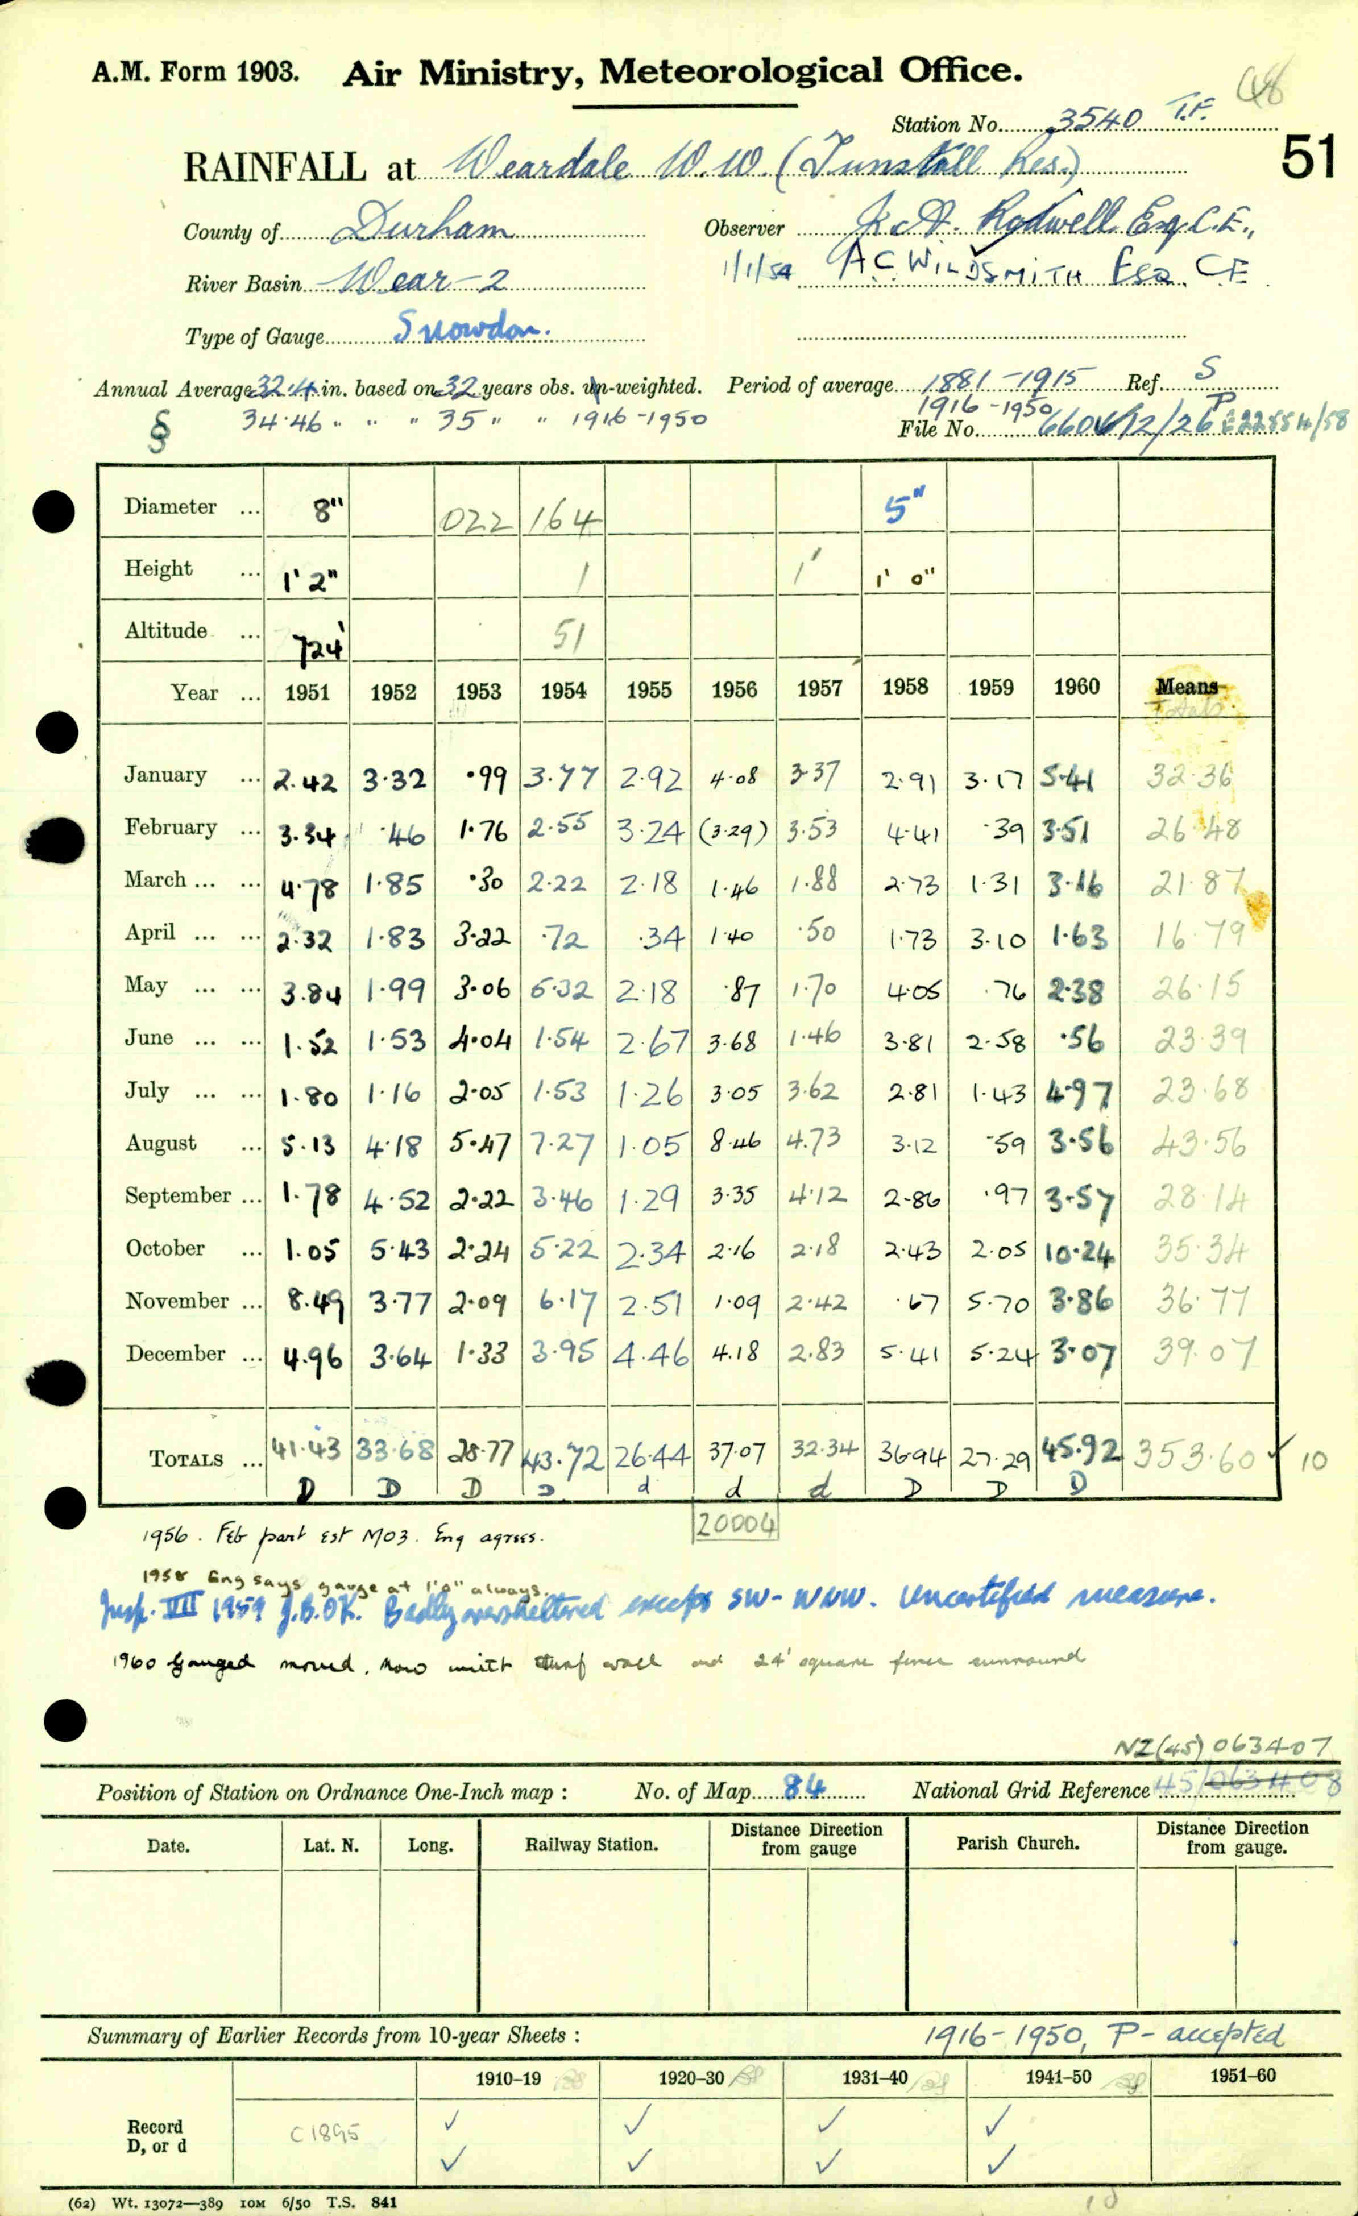 A.M. Form 1903. Air Ministry, Meteorological Office. 48
Station No. 3540 T.F.
51
RAINFALL at Weardale W.W. (Tunstall Res.)
County of Durham Observer J. A. Rodwell Esq. C.E.,
1/1/54 A C WILDSMITH ESQ. CE
River Basin Wear-2
Type of Gauge Snowdon.
Annual Average 32.4 in. based on 32 years obs. un-weighted. Period of average 1881-1915 Ref. S
§ 34.46 " " " 35 " " 1916-1950 1916-1950 P
File No. 660412/26 E22554/58
Diameter ... 8" 022 164 5"
Height ... 1' 2" 1 1' 1' 0"
Altitude ... 724' 51
Year ... 1951 1952 1953 1954 1955 1956 1957 1958 1959 1960 Means Totals
January ... 2.42 3.32 .99 3.77 2.92 4.08 3.37 2.91 3.17 5.41 32.36
February ... 3.34 .46 1.76 2.55 3.24 (3.29) 3.53 4.41 .39 3.51 26.48
March ... ... 4.78 1.85 .30 2.22 2.18 1.46 1.88 2.73 1.31 3.16 21.87
April ... ... 2.32 1.83 3.22 .72 .34 1.40 .50 1.73 3.10 1.63 16.79
May ... ... 3.84 1.99 3.06 5.32 2.18 .87 1.70 4.05 .76 2.38 26.15
June ... ... 1.52 1.53 4.04 1.54 2.67 3.68 1.46 3.81 2.58 .56 23.39
July ... ... 1.80 1.16 2.05 1.53 1.26 3.05 3.62 2.81 1.43 4.97 23.68
August ... 5.13 4.18 5.47 7.27 1.05 8.46 4.73 3.12 .59 3.56 43.56
September ... 1.78 4.52 2.22 3.46 1.29 3.35 4.12 2.86 .97 3.57 28.14
October ... 1.05 5.43 2.24 5.22 2.34 2.16 2.18 2.43 2.05 10.24 35.34
November ... 8.49 3.77 2.09 6.17 2.51 1.09 2.42 .67 5.70 3.86 36.77
December ... 4.96 3.64 1.33 3.95 4.46 4.18 2.83 5.41 5.24 3.07 39.07
TOTALS ... 41.43 33.68 28.77 43.72 26.44 37.07 32.34 36.94 27.29 45.92 353.60 ✓ 10
D D D D d d d D D D
20004
1956. Feb part est MO3. Eng agrees.
1958 Eng says gauge at 1'0" always.
Insp. VII 1959 J.B.OK. Badly oversheltered except SW-WNW. Uncertified measure.
1960 Gauged moved. Now with turf wall and 24' square fence surround
NZ(45)063407
Position of Station on Ordnance One-Inch map : No. of Map 84 National Grid Reference 45/063408
Date. Lat. N. Long. Railway Station. Distance Direction from gauge Parish Church. Distance Direction from gauge.
Summary of Earlier Records from 10-year Sheets : 1916-1950, P - accepted
1910-19 1920-30 1931-40 1941-50 1951-60
Record D, or d C1895 ✓ ✓ ✓ ✓
✓ ✓ ✓ ✓
(62) Wt. 13072—389 10M 6/50 T.S. 841
10